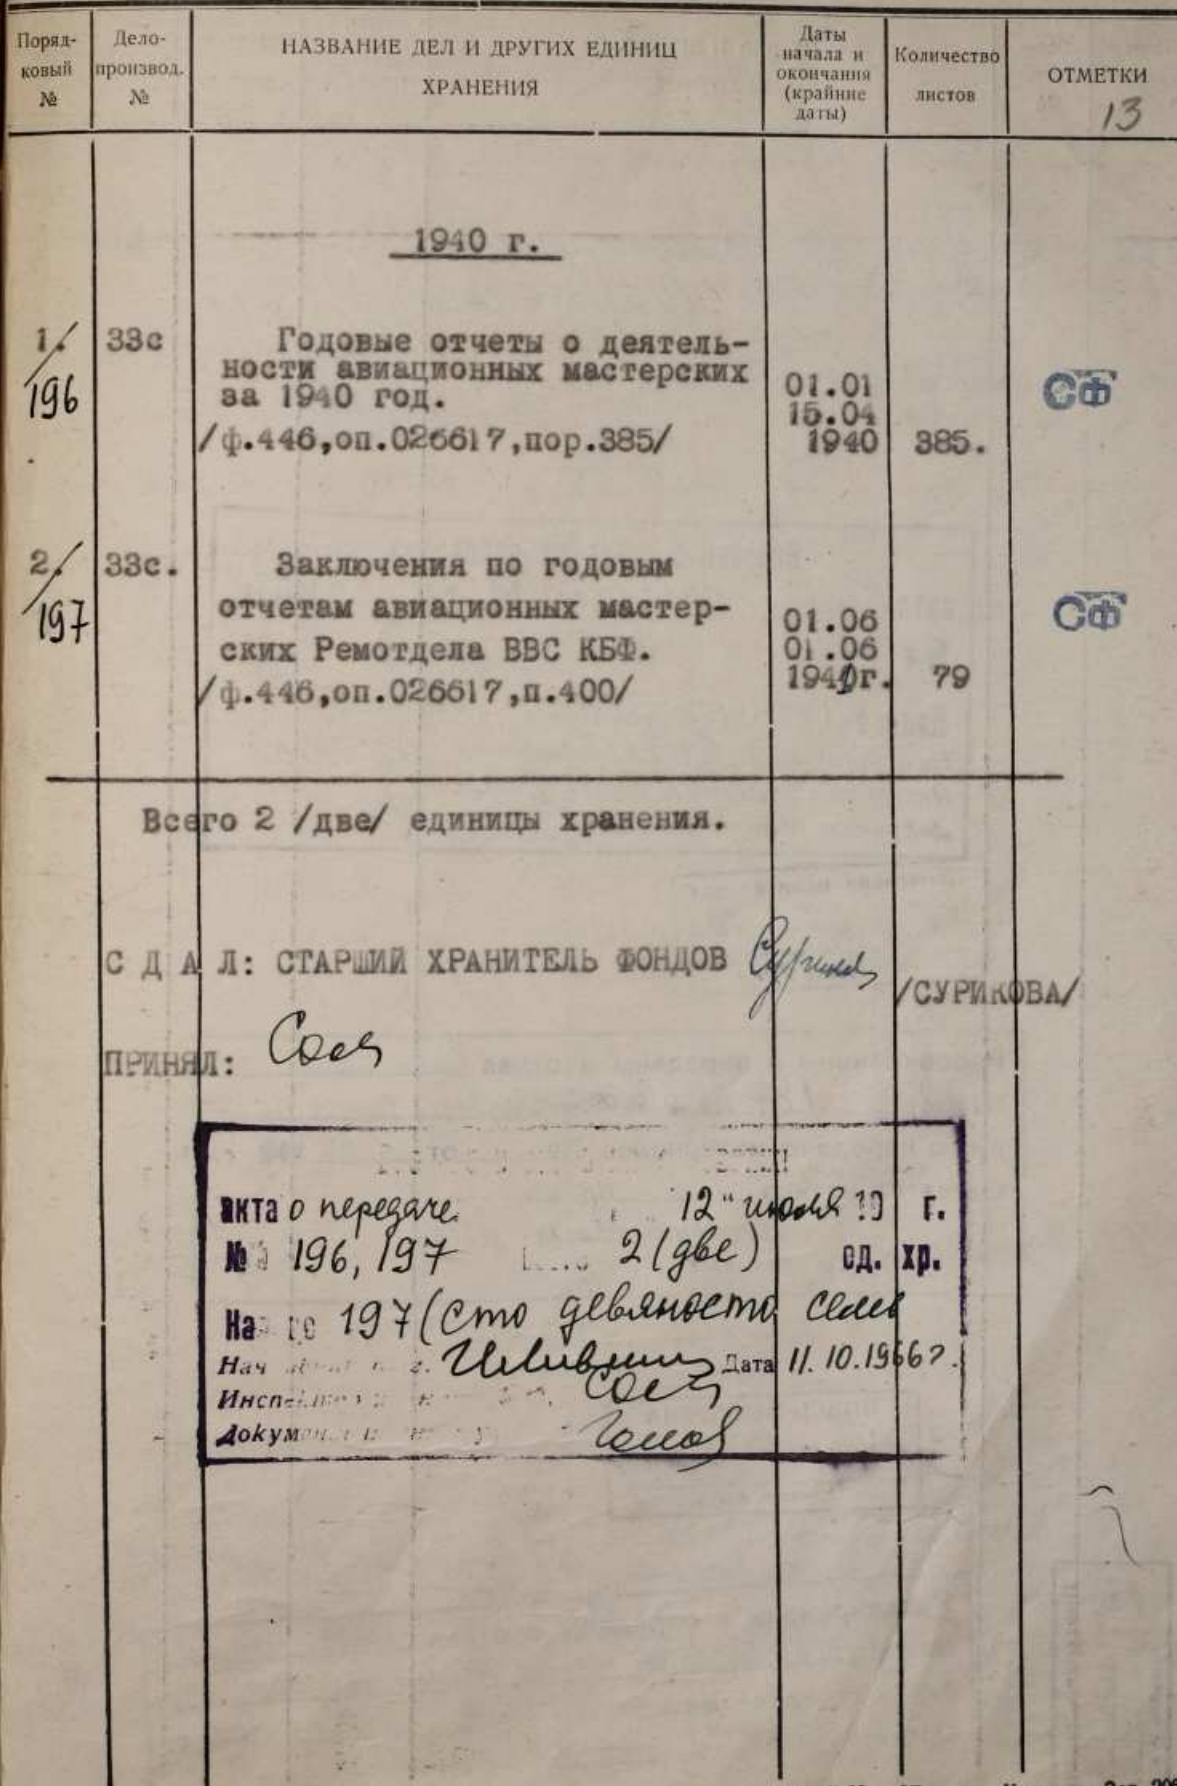 Поряд-
ковый
№
Дело-
производ.
№
НАЗВАНИЕ ДЕЛ И ДРУГИХ ЕДИНИЦ
ХРАНЕНИЯ
Даты
начала и
окончания
(крайние
даты)
Количество
листов
ОТМЕТКИ
13
1940 г.
1. 33с Годовые отчеты о деятель-
ности авиационных мастерских
196 за 1940 год. 01.01 СФ
15.04
/ф.446,оп.026617,пор.385/ 1940 385.
2. 33с. Заключения по годовым
197 отчетам авиационных мастер- 01.06 СФ
ских Ремотдела ВВС КБФ. 01.06
/ф.446,оп.026617,п.400/ 1941г. 79
Всего 2 /две/ единицы хранения.
С Д А Л: СТАРШИЙ ХРАНИТЕЛЬ ФОНДОВ /СУРИКОВА/
ПРИНЯЛ:
акта о передаче 12" июля г.
№ 196, 197 2 (две) ед. хр.
197 (сто девяносто семь
Дата 11.10.1966г.